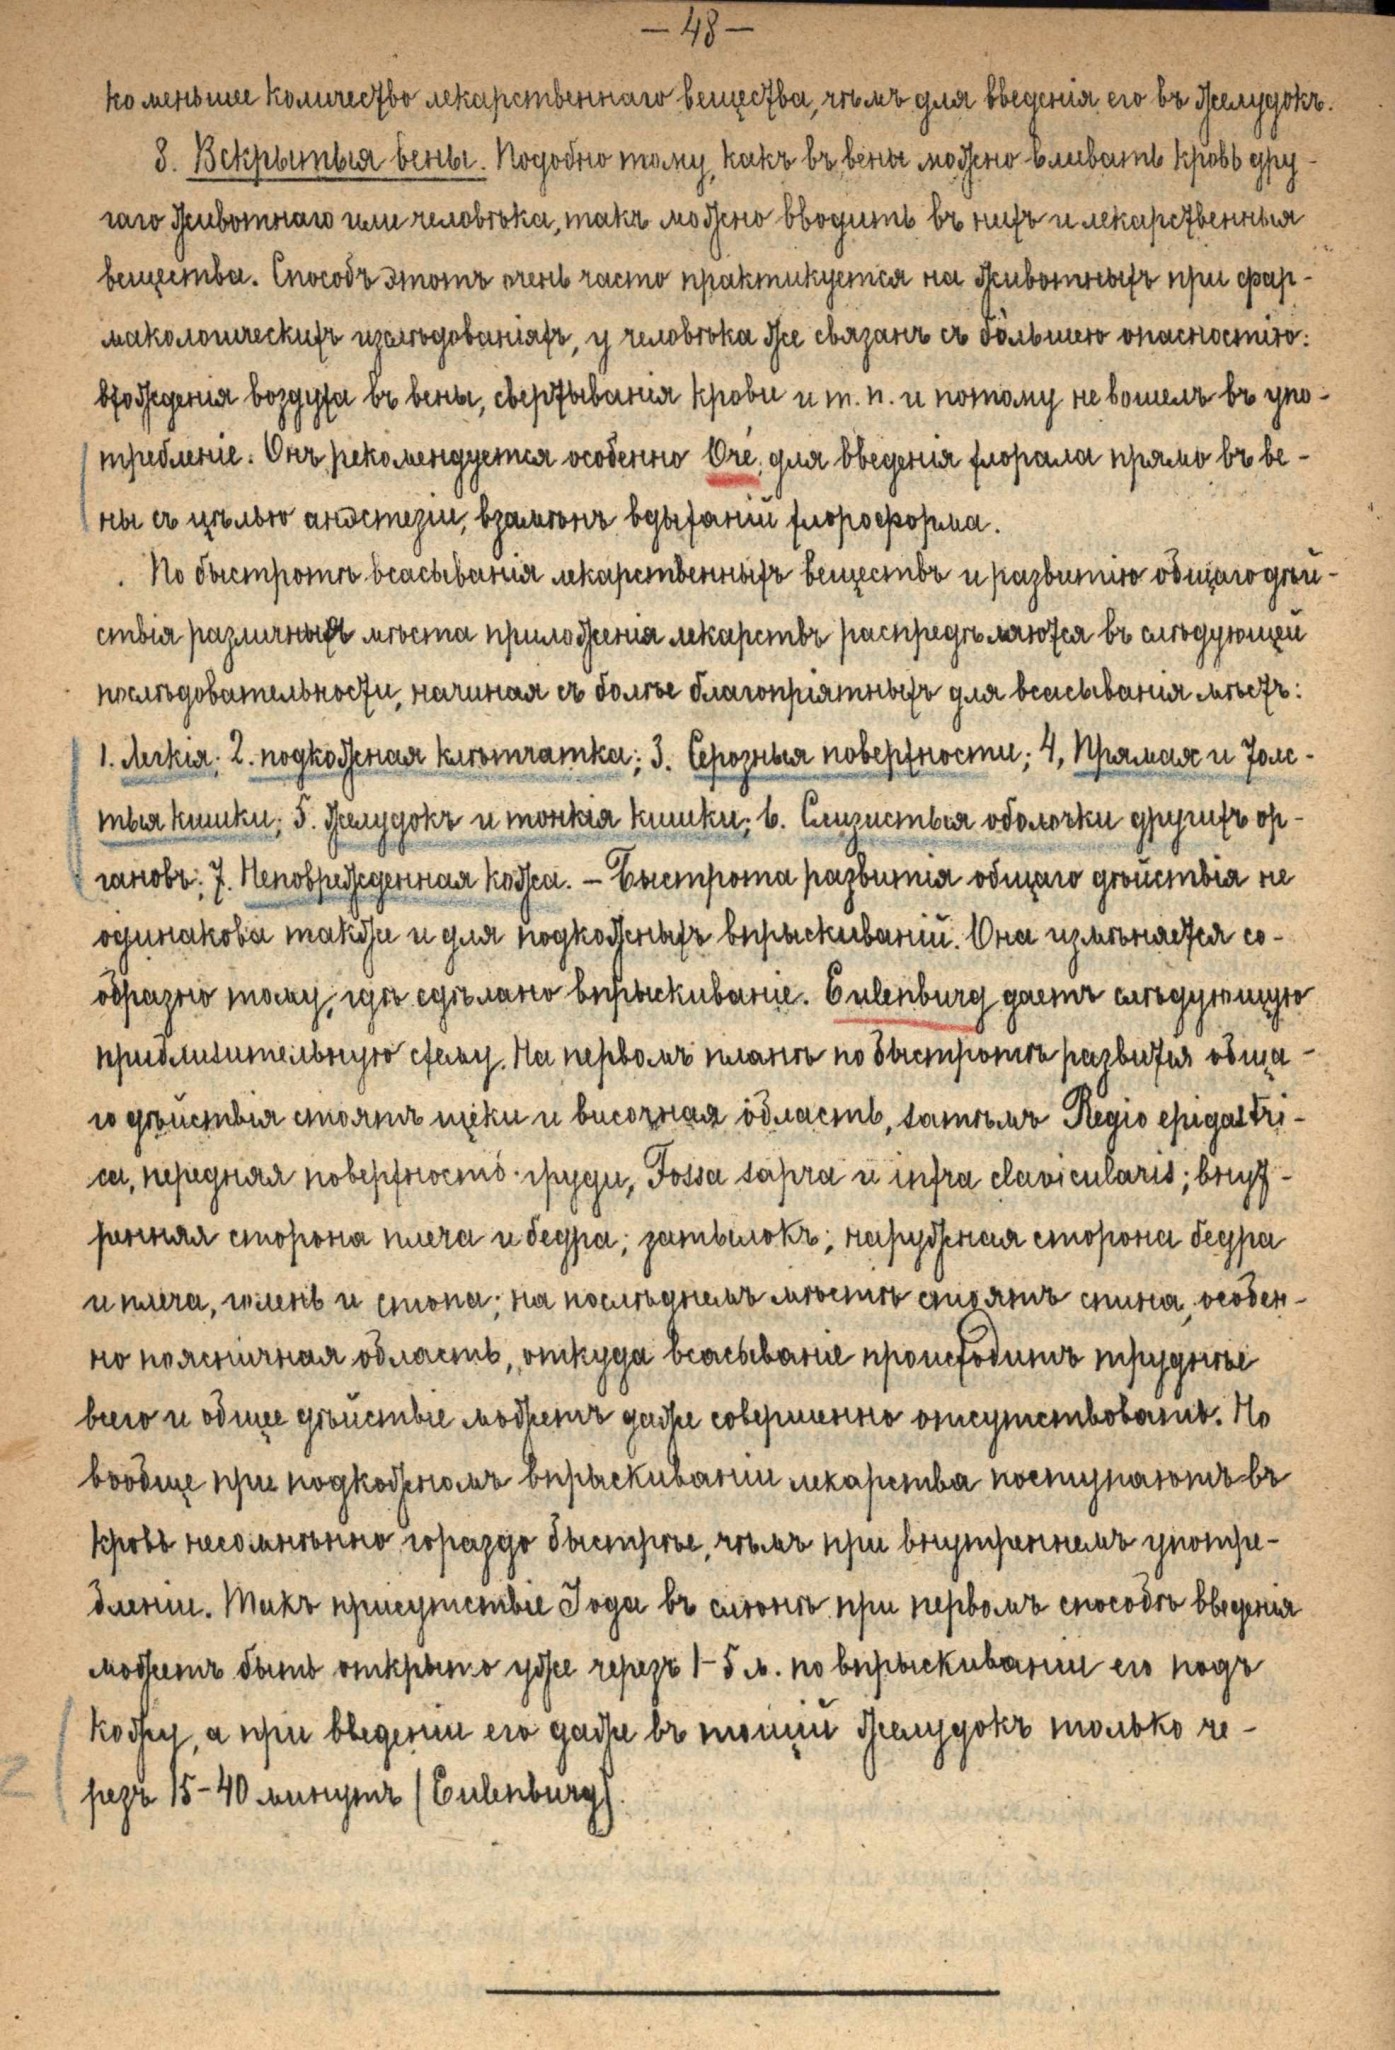 — 48 —
ко меньшее количество лекарственнаго вещества, чѣмъ для введенія его въ желудокъ.
8. Вскрытыя вены. Подобно тому, какъ въ вены можно вливать кровь дру-
гаго животнаго или человѣка, такъ можно вводить въ нихъ и лекарственныя
вещества. Способъ этотъ очень часто практикуется на животныхъ при фар-
макологическихъ изслѣдованіяхъ, у человѣка же связанъ съ большею опасностію:
вхожденія воздуха въ вены, свертыванія крови и т. п. и потому не вошелъ въ упо-
требленіе. Онъ рекомендуется особенно Oré, для введенія хлорала прямо въ ве-
ны съ цѣлью анэстезіи, взамѣнъ вдыханій хлороформа.
По быстротѣ всасыванія лекарственныхъ веществъ и развитію общаго дѣй-
ствія различныя мѣста приложенія лекарствъ распредѣляются въ слѣдующей
послѣдовательности, начиная съ болѣе благопріятныхъ для всасыванія мѣстъ:
1. Легкія; 2. подкожная клѣтчатка; 3. Серозныя поверхности; 4, Прямая и толс-
тыя кишки; 5. Желудокъ и тонкія кишки; 6. Слизистыя оболочки другихъ ор-
гановъ; 7. Неповрежденная кожа. – Быстрота развитія общаго дѣйствія не
одинакова также и для подкожныхъ впрыскиваній. Она измѣняется со-
образно тому, гдѣ сдѣлано впрыскиваніе. Eulenburg даетъ слѣдующую
приблизительную схему. На первомъ планѣ по быстротѣ развитія обща-
го дѣйствія стоятъ щеки и височная область, затѣмъ Regio epigastri-
ca, передняя поверхность груди, Fossa supra и infra clavicularis; внут-
ренняя сторона плеча и бедра; затылокъ; наружная сторона бедра
и плеча, голень и стопа; на послѣднемъ мѣстѣ стоятъ спина, особен-
но поясничная область, откуда всасываніе происходитъ труднѣе
всего и общее дѣйствіе можетъ даже совершенно отсутствовать. Но
вообще при подкожномъ впрыскиваніи лекарства поступаютъ въ
кровь несомнѣнно гораздо быстрѣе, чѣмъ при внутреннемъ употре-
бленіи. Такъ присутствіе Iода въ слюнѣ при первомъ способѣ введенія
можетъ быть открыто уже черезъ 1–5 м. по впрыскиваніи его подъ
кожу, а при введеніи его даже въ тощій желудокъ только че-
резъ 15–40 минутъ (Eulenburg).